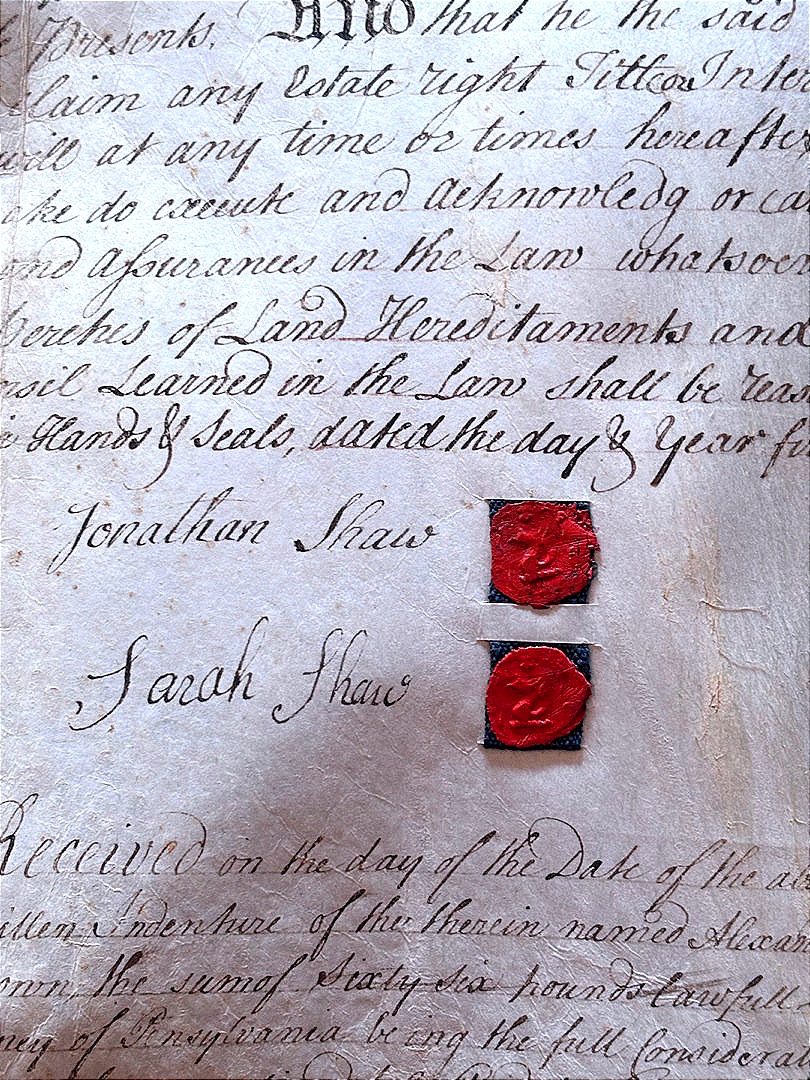 Presents. And that he the said
Claim any Estate right Title or Inter
will at any time or times hereafter
ake do execute and Acknowledg or ca
and Assurances in the Law whatsoev
perches of Land Hereditaments and
nsil Learned in the Law shall be reas
Hands & Seals, dated the day & Year fi
Jonathan Shaw
Sarah Shaw
Received on the day of the Date of the ab
itten Indenture of the therein named Alexan
own the sum of Sixty six pounds lawfull
ney of Pensylvania being the full Considerat